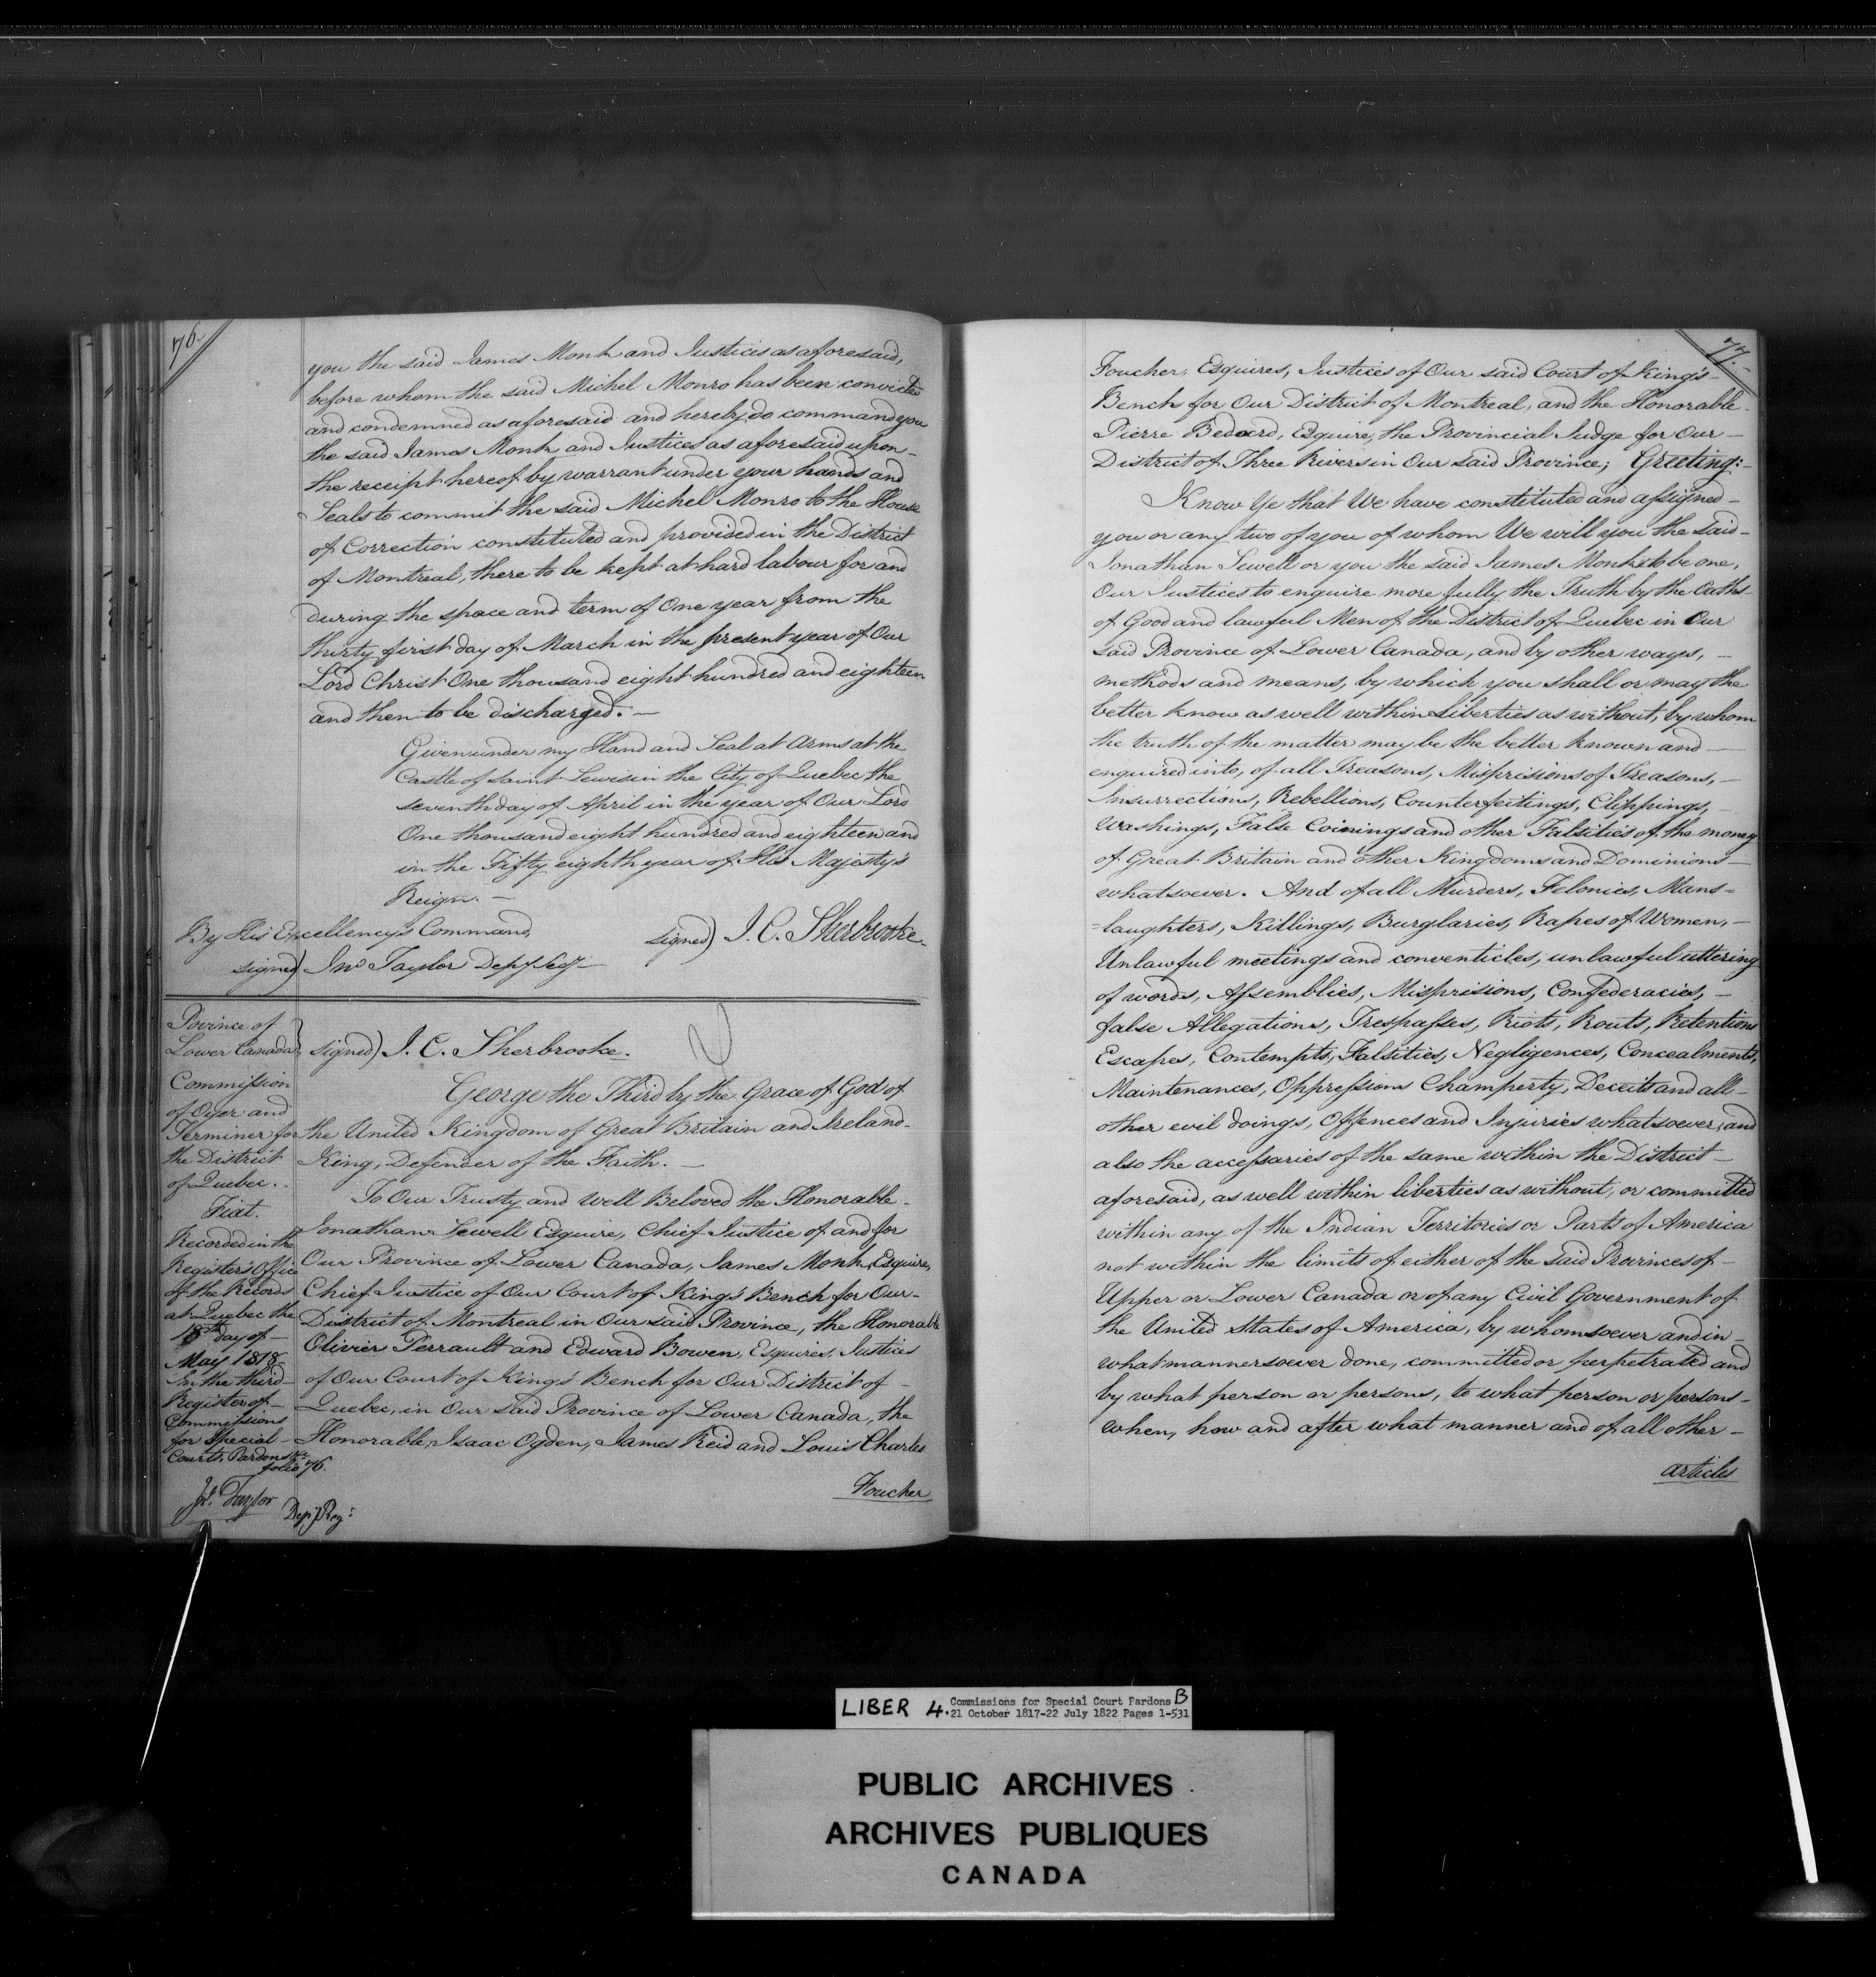 76.
you the said James Monk and Justices as aforesaid,
before whom the said Michel Monro has been convicted
and condemned as aforesaid and hereby do command you
the said James Monk and Justices as aforesaid upon -
the receipt hereof by warrant under your hands and
Seals to commit the said Michel Monro to the House
of Correction constituted and provided in the District
of Montreal, there to be kept at hard labour for and
during the space and term of One year from the
thirty first day of March in the present year of Our
Lord Christ One thousand eight hundred and eighteen
and then to be discharged. -
Given under my Hand and Seal at Arms at the
Castle of Saint Lewis in the City of Quebec the
seventh day of April in the year of Our Lord
One thousand eight hundred and eighteen and
in the Fifty eighth year of His Majesty's
Reign. -
By His Excellency's Command,
signed) J. C. Sherbrooke.
signed) Jno Taylor Depy Secy -
Povince of
Lower Canada}
Commission
of Oyer and
Terminer for
the District
of Quebec. -
Fiat.
Recorded in the
Register's Office
of the Records
at Quebec the
18th day of -
May 1818
In the third
Register of -
Commissions
for Special -
Courts, Pardons &c
folio 76.
Jn. Taylor
Depy Reg:
signed) J. C. Sherbrooke.
George the Third by the Grace of God of
the United Kingdom of Great Britain and Ireland -
King, Defender of the Faith. -
To Our Trusty and well Beloved the Honorable -
Jonathan Sewell Esquire, Chief Justice of and for
Our Province of Lower Canada, James Monk, Esquire,
Chief Justice of Our Court of King's Bench for Our -
District of Montreal in Our said Province, the Honorable
Olivier Perrault and Edward Bowen, Esquires, Justices
of Our Court of King's Bench for Our District of -
Quebec, in Our said Province of Lower Canada, the
Honorable Isaac Ogden, James Reid and Louis Charles
Foucher
77.
Foucher, Esquires, Justices of Our said Court of King's -
Bench for Our District of Montreal, and the Honorable -
Pierre Bedard, Esquire, the Provincial Judge for Our -
District of Three Rivers in Our said Province; Greeting: -
Know Ye that We have constituted and assigned -
you or any two of you of whom We will you the said -
Jonathan Sewell or you the said James Monk to be one,
Our Justices to enquire more fully the Truth by the Oaths
of Good and lawful Men of the District of Quebec in Our
said Province of Lower Canada, and by other ways, -
methods and means, by which you shall or may the
better know as well within Liberties as without, by whom
the truth of the matter may be the better known and -
enquired into, of all Treasons, Misprisions of Treasons, -
Insurrections, Rebellions, Counterfeitings, Clippings, -
Washings, False Coinings and other Falsities of the money
of Great Britain and other Kingdoms and Dominions -
whatsoever. And of all Murders, Felonies, Mans=
=laughters, Killings, Burglaries, Rapes of Women, -
Unlawful meetings and conventicles, unlawful uttering
of words, Assemblies, Misprisions, Confederacies, -
false Allegations, Trespasses, Riots, Routs, Retentions
Escapes, Contempts, Falsities, Negligences, Concealments,
Maintenances, Oppressions Champerty, Deceits and all -
other evil doings, Offences and Injuries whatsoever, and
also the accessaries of the same within the District -
aforesaid, as well within liberties as without, or committed
within any of the Indian Territories or Parts of America
not within the limits of either of the said Provinces of -
Upper or Lower Canada or of any Civil Government of
the United States of America, by whomsoever and in -
what manner soever done, committed or perpetrated and
by what person or persons, to what person or persons -
when, how and after what manner and of all other -
articles
LIBER 4. Commissions for Special Court Pardons B
21 October 1817-22 July 1822 Pages 1-531
PUBLIC ARCHIVES
ARCHIVES PUBLIQUES
CANADA